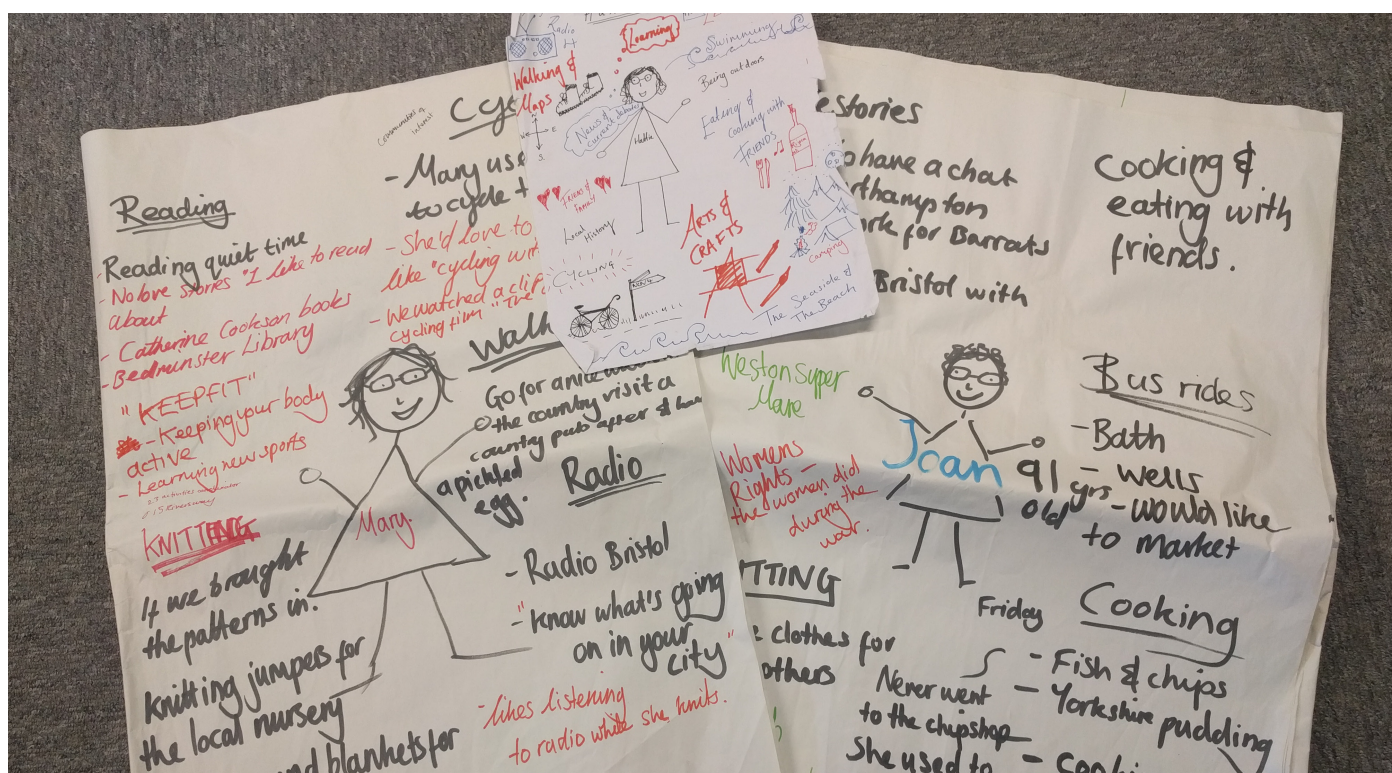 Reading
Reading quiet time
- No love stories "I like to read
about
- Catherine Cookson books
- Bedminster Library
"KEEPFIT"
- Keeping your body
active
- Learning new sports
KNITTING
If we brought
the patterns in.
knitting jumpers for
the local nursery
blankets for
- Many use
to cycle t
- She'd love to
like "cycling
- We watched a clip
cycling film "The
Walk
Go for a nice
the country visit a
country pub after & have
a pickled
egg.
Mary.
Radio
- Radio Bristol
- "know what's going
on in your
city"
- likes listening
to radio while she knits.
Radio
4
Learning
Swimming
Walking &
Maps
Being outdoors
News &
current debate
Hattie
Eating &
cooking with
FRIENDS
Friends &
family
Local
History
ARTS &
CRAFTS
camping
CYCLING
The Seaside &
The Beach
stories
have a chat
rthampton
rk for Barratts
Bristol with
Cooking &
eating with
friends.
Weston Super
Mare
Womens
Rights -
the women did
during the
war.
Joan 91
yrs
old
Bus rides
- Bath
- Wells
- would like
to market
TTING
clothes for
others
Friday
Cooking
- Fish & chips
- Yorkshire pudding
Never went
to the chipshop
She used to